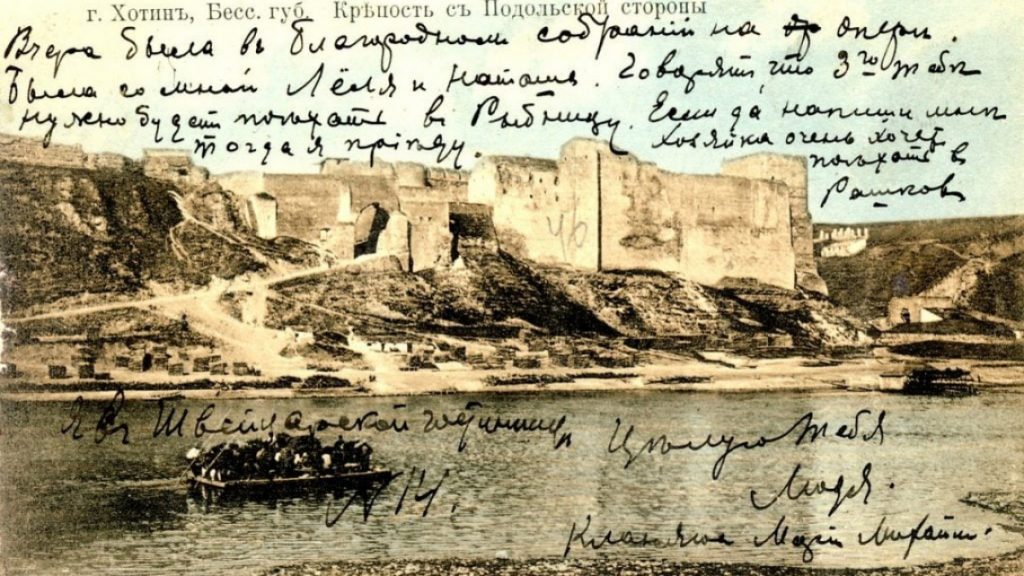 г. Хотинъ, Бесс. губ. Крѣпость съ Подольской стороны
Вчера была въ благородномъ собраніи на опери.
Была со мной Лёля и Наташа. Говорятъ что 3го тебѣ
нужно будетъ поѣхать въ Рыбницу. Если да напиши мнѣ
тогда я пріѣду. Хозяйка очень хочет
поѣхать в
Рашков
46
Я въ Швейцарской гостиницѣ
N 14.
Цѣлую тебя
Люся.
Кланяюсь Маріи Михайл.